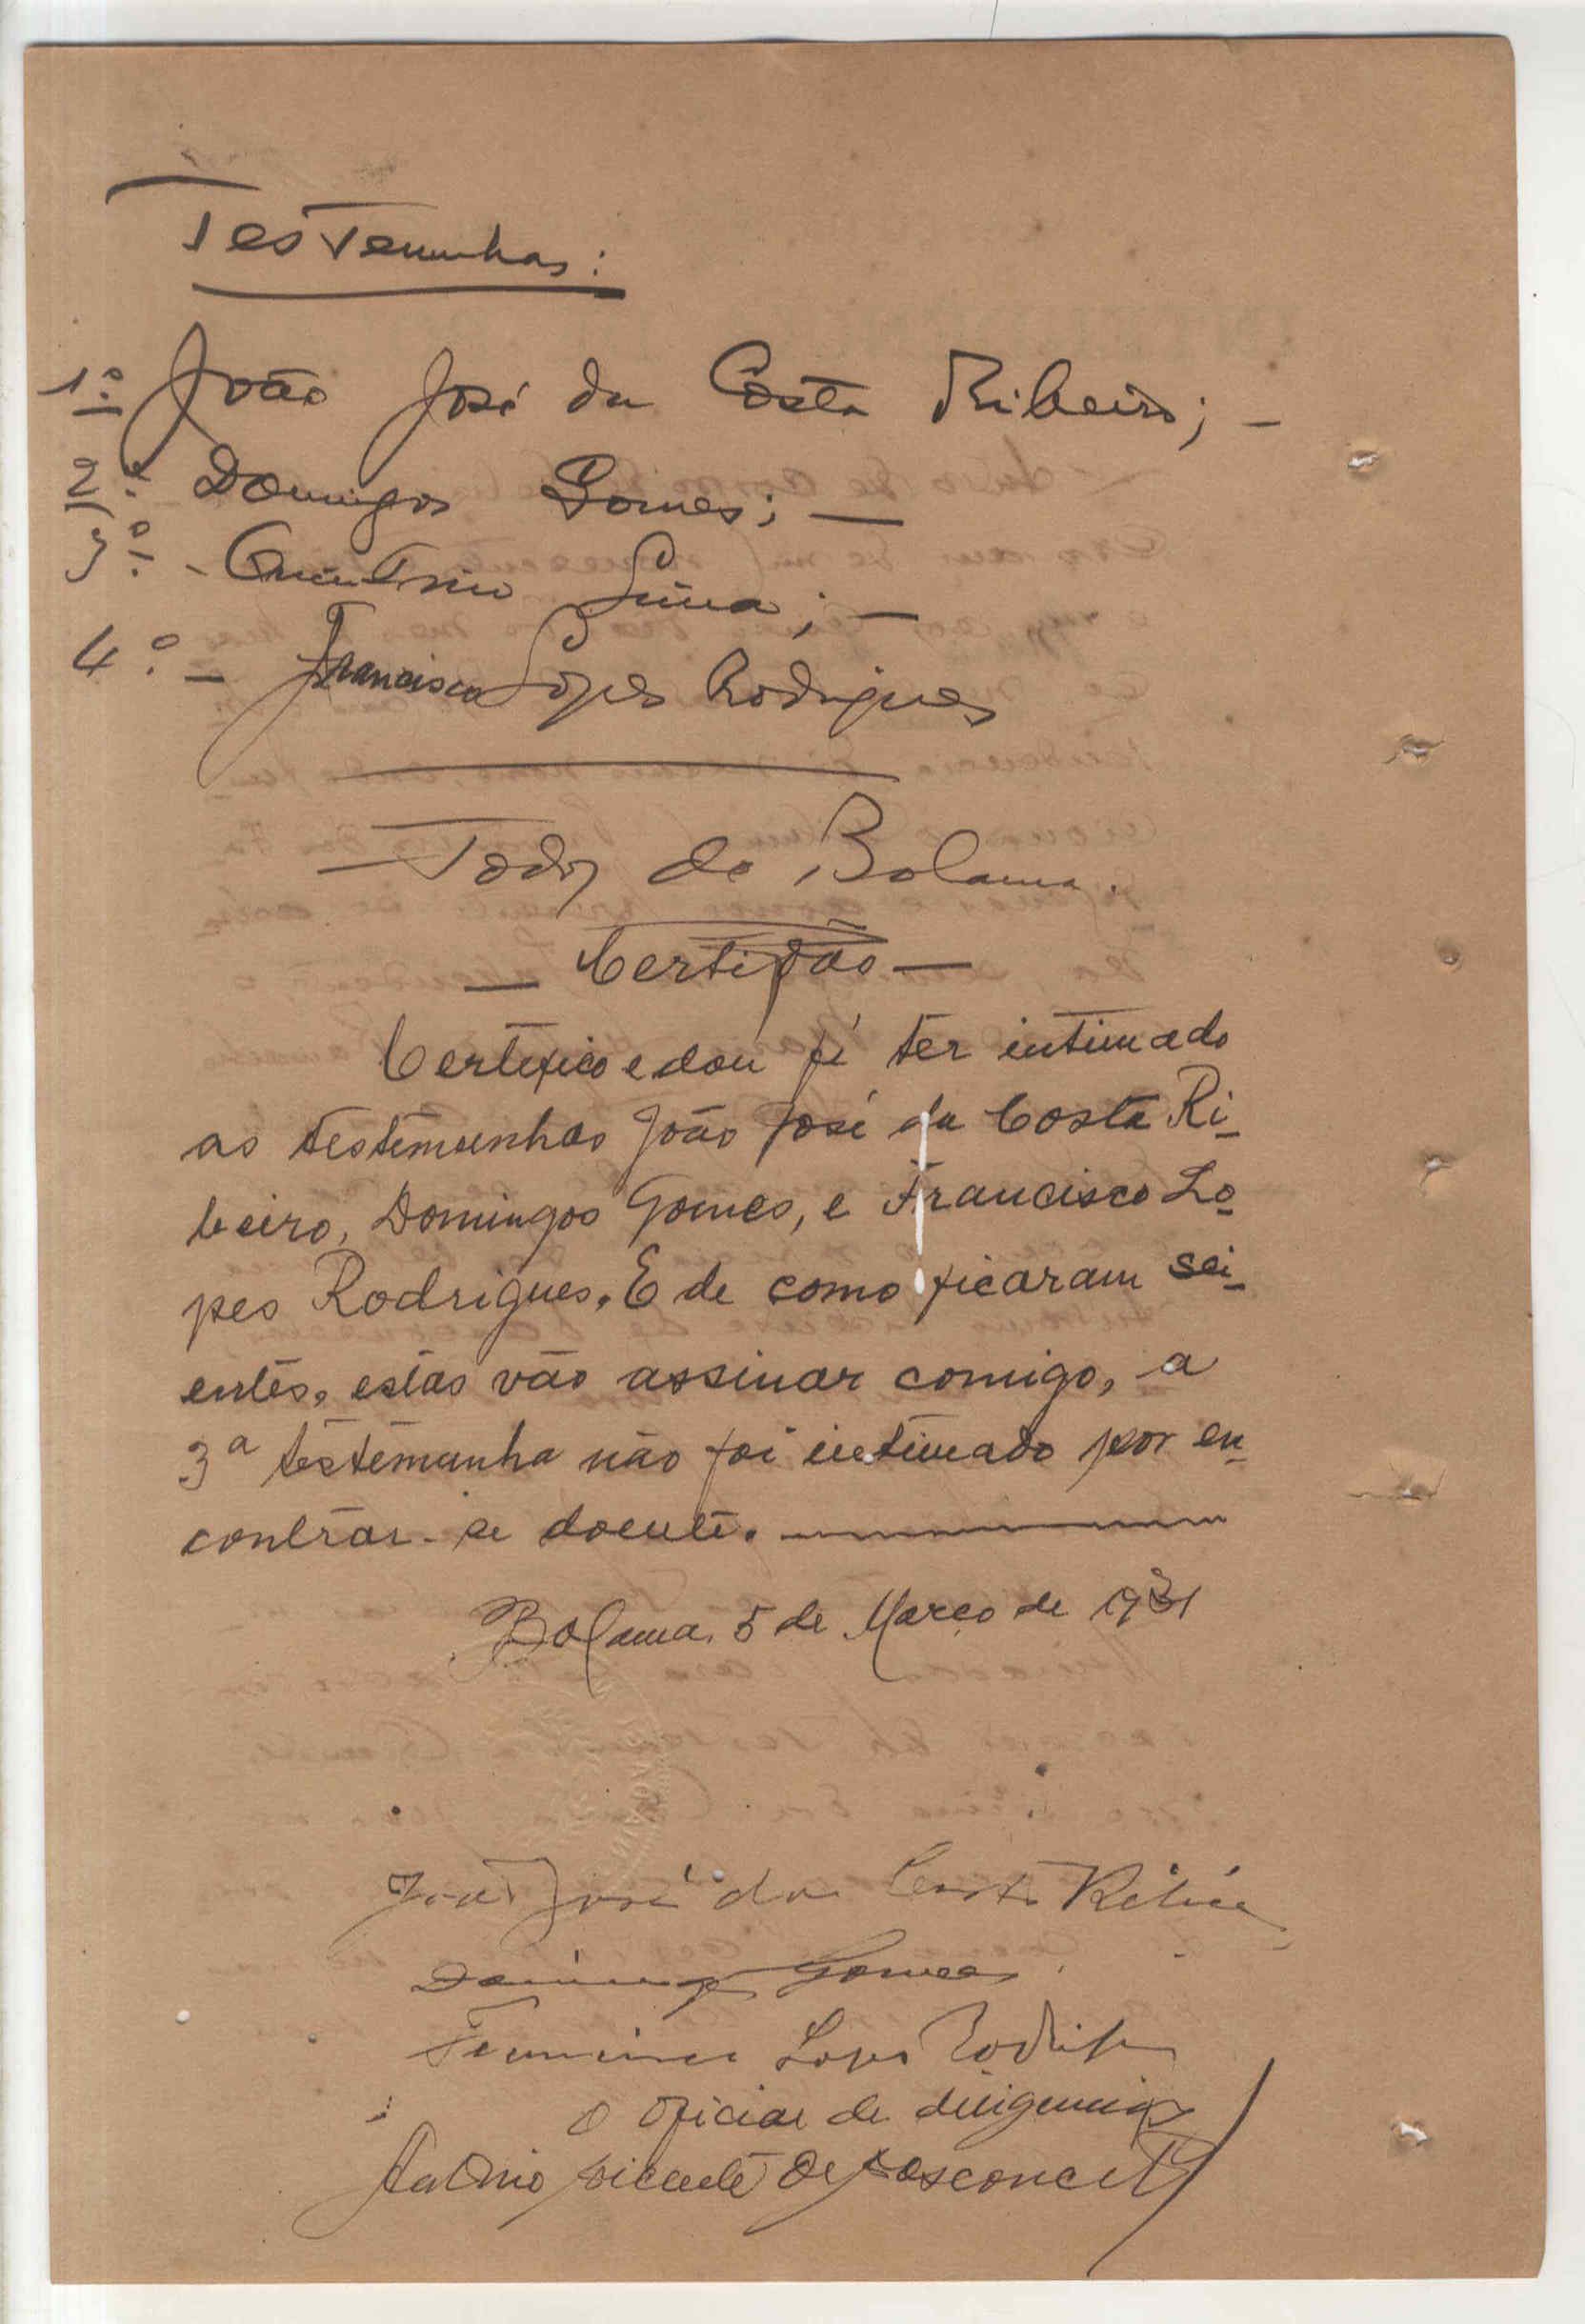 Testemunhas:
1º João José da Costa Ribeiro; -
2ª Domingos Gomes; —
3º - Quintino Lima; -
4º - Francisco Lopes Rodrigues
Todos de Bolama.
— Certidão —
Certefico e dou fé ter intimado
as testemunhas João José da Costa Ri-
beiro, Domingos Gomes, e Francisco Lo-
pes Rodrigues. E de como ficaram sci-
entes, estas vão assinar comigo, a
3ª testemunha não foi intimado por en-
contrar-se doente.
Bolama, 5 de Março de 1931
João José da Costa Ribeiro
Domingos Gomes
Francisco Lopes Rodrigues
O oficial de diligencias
Antonio Vicente de Vasconcelos